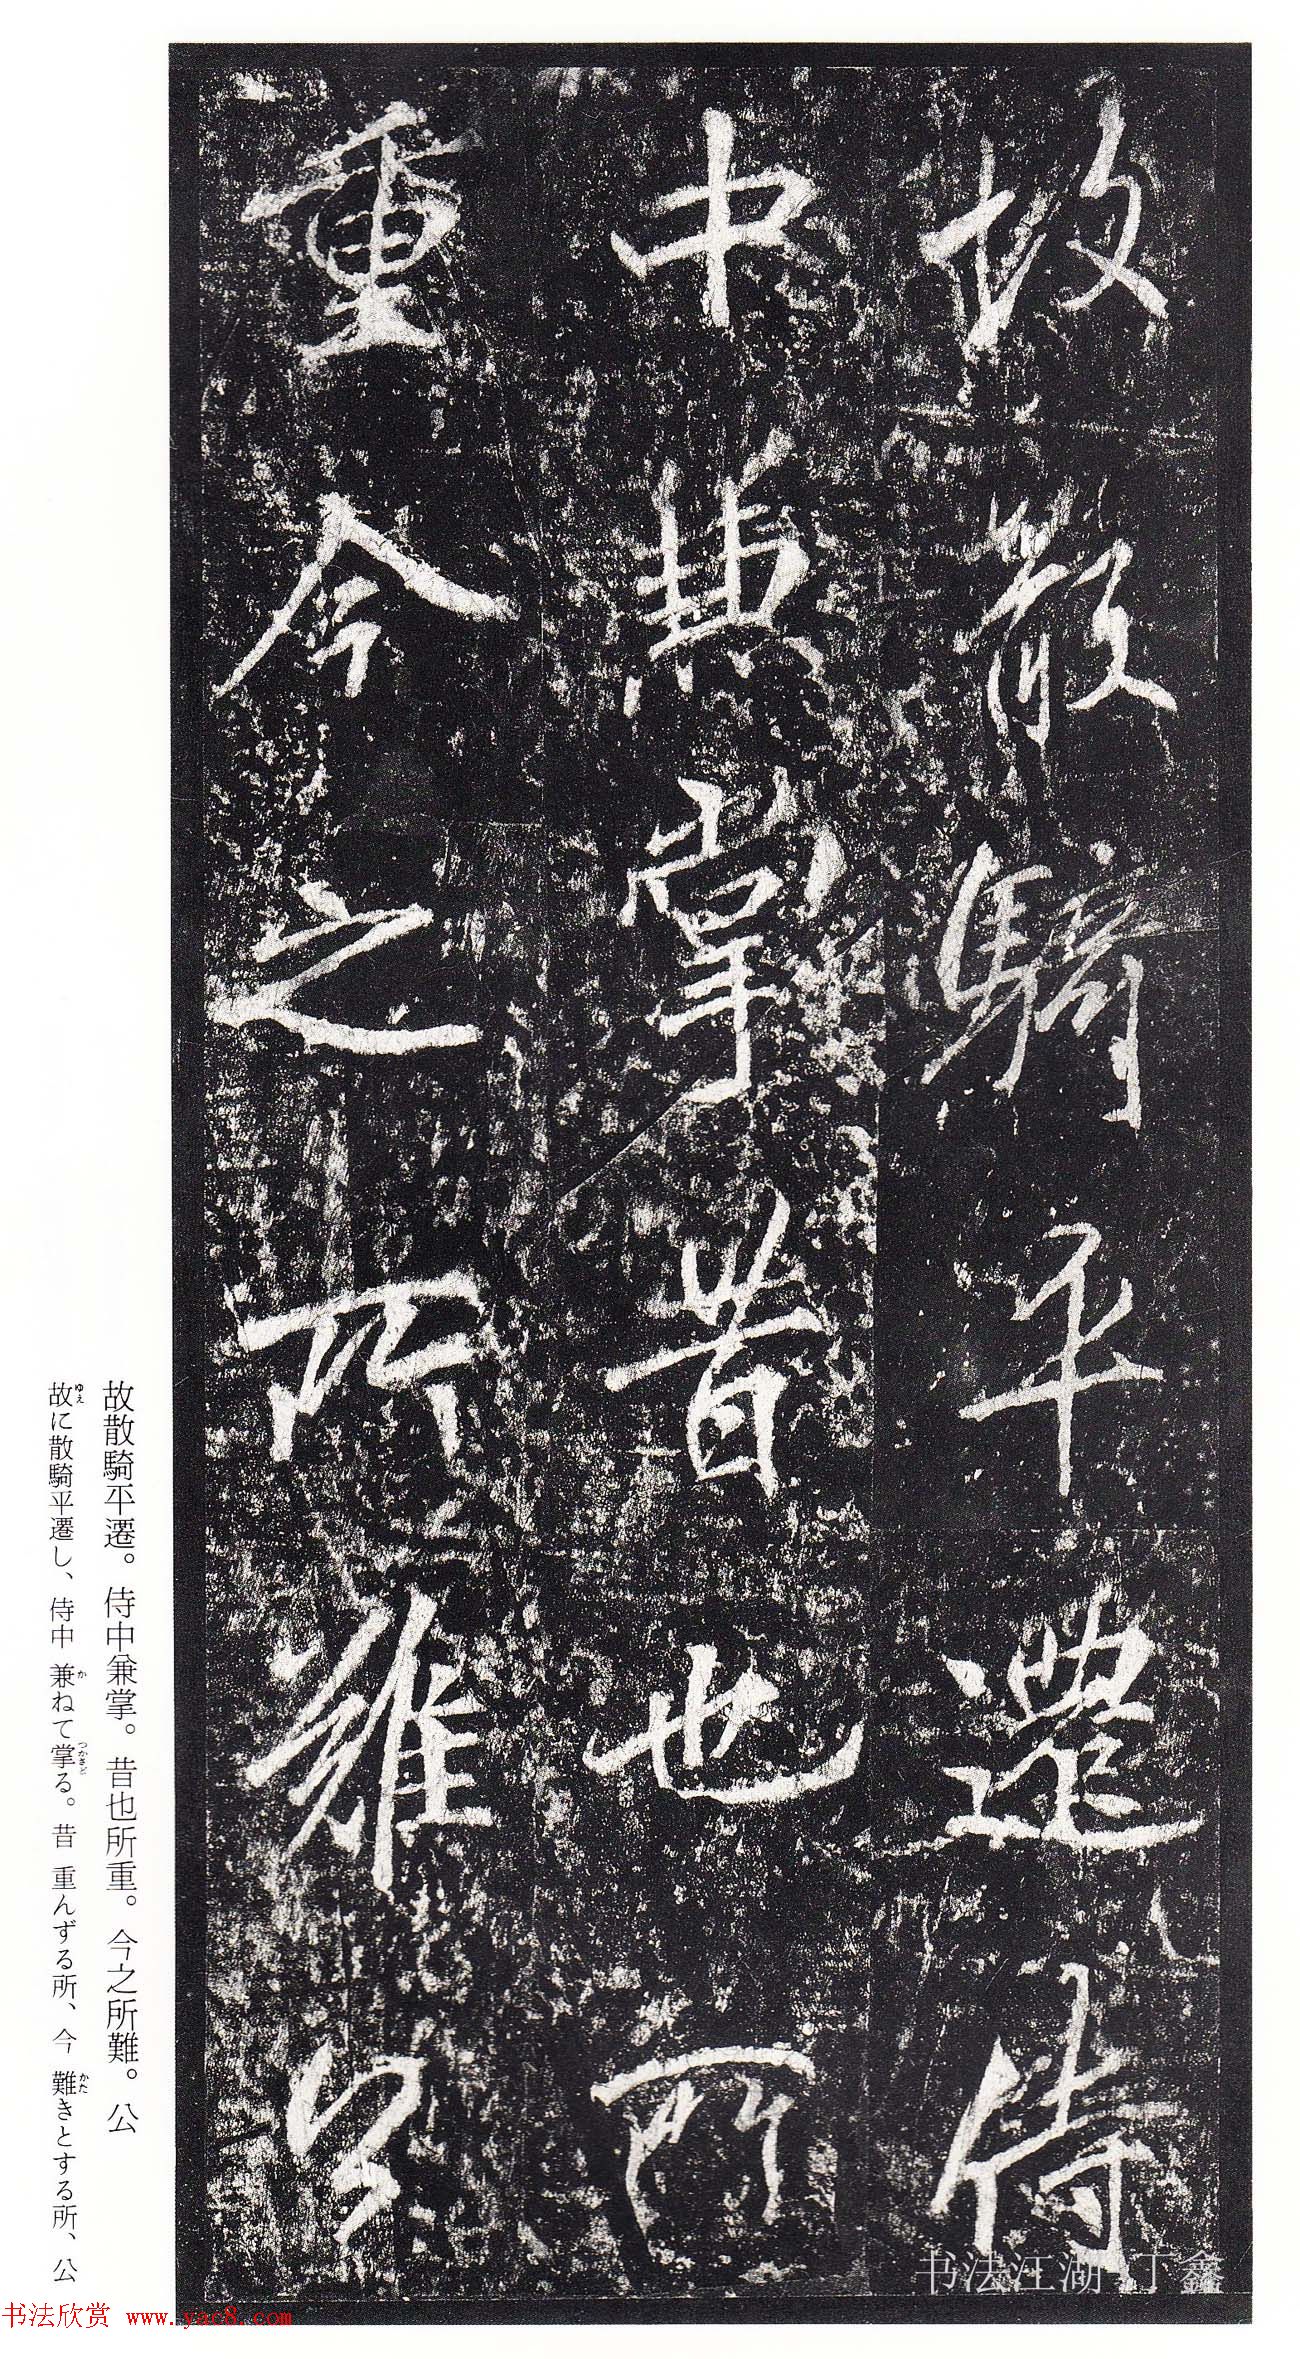 故散騎平遷侍
中典掌昔也所
重今之所難公
故散騎平遷。侍中兼掌。昔也所重。今之所難。公
ゆえ か つかさど かた
故に散騎平遷し、侍中 兼ねて掌る。昔 重んずる所、今 難きとする所、公
书法江湖 丁鑫
书法欣赏 www.yac8.com